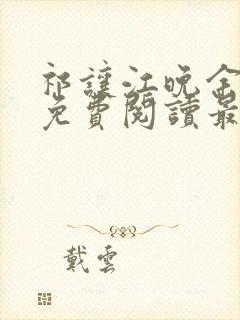 祁讓江晚余
免費閱讀最
戴雲